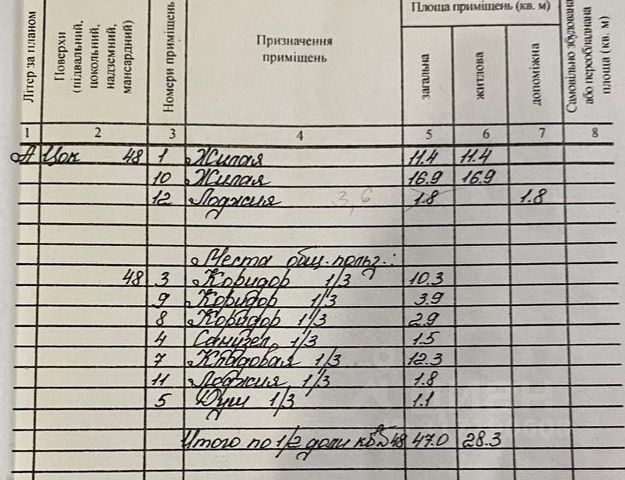 Літер за планом
Поверхи (підвальний, цокольний, надземний, мансардний)
Номери приміщень
Призначення приміщень
Площа приміщень (кв. м)
загальна
житлова
допоміжна
Самовільно збудована або переобладнана площа (кв. м)
1 2 3 4 5 6 7 8
А Цок 48 1 Жилая 11.4 11.4
10 Жилая 16.9 16.9
12 Лоджия 3,6 1.8 1.8
Места общ. польз.:
48 3 Коридор 1/3 10.3
9 Коридор 1/3 3.9
8 Коридор 1/3 2.9
4 Санузел 1/3 1.5
7 Кладовая 1/3 12.3
11 Лоджия 1/3 1.8
5 Душ 1/3 1.1
Итого по 1/2 доли кв.№48 47.0 28.3